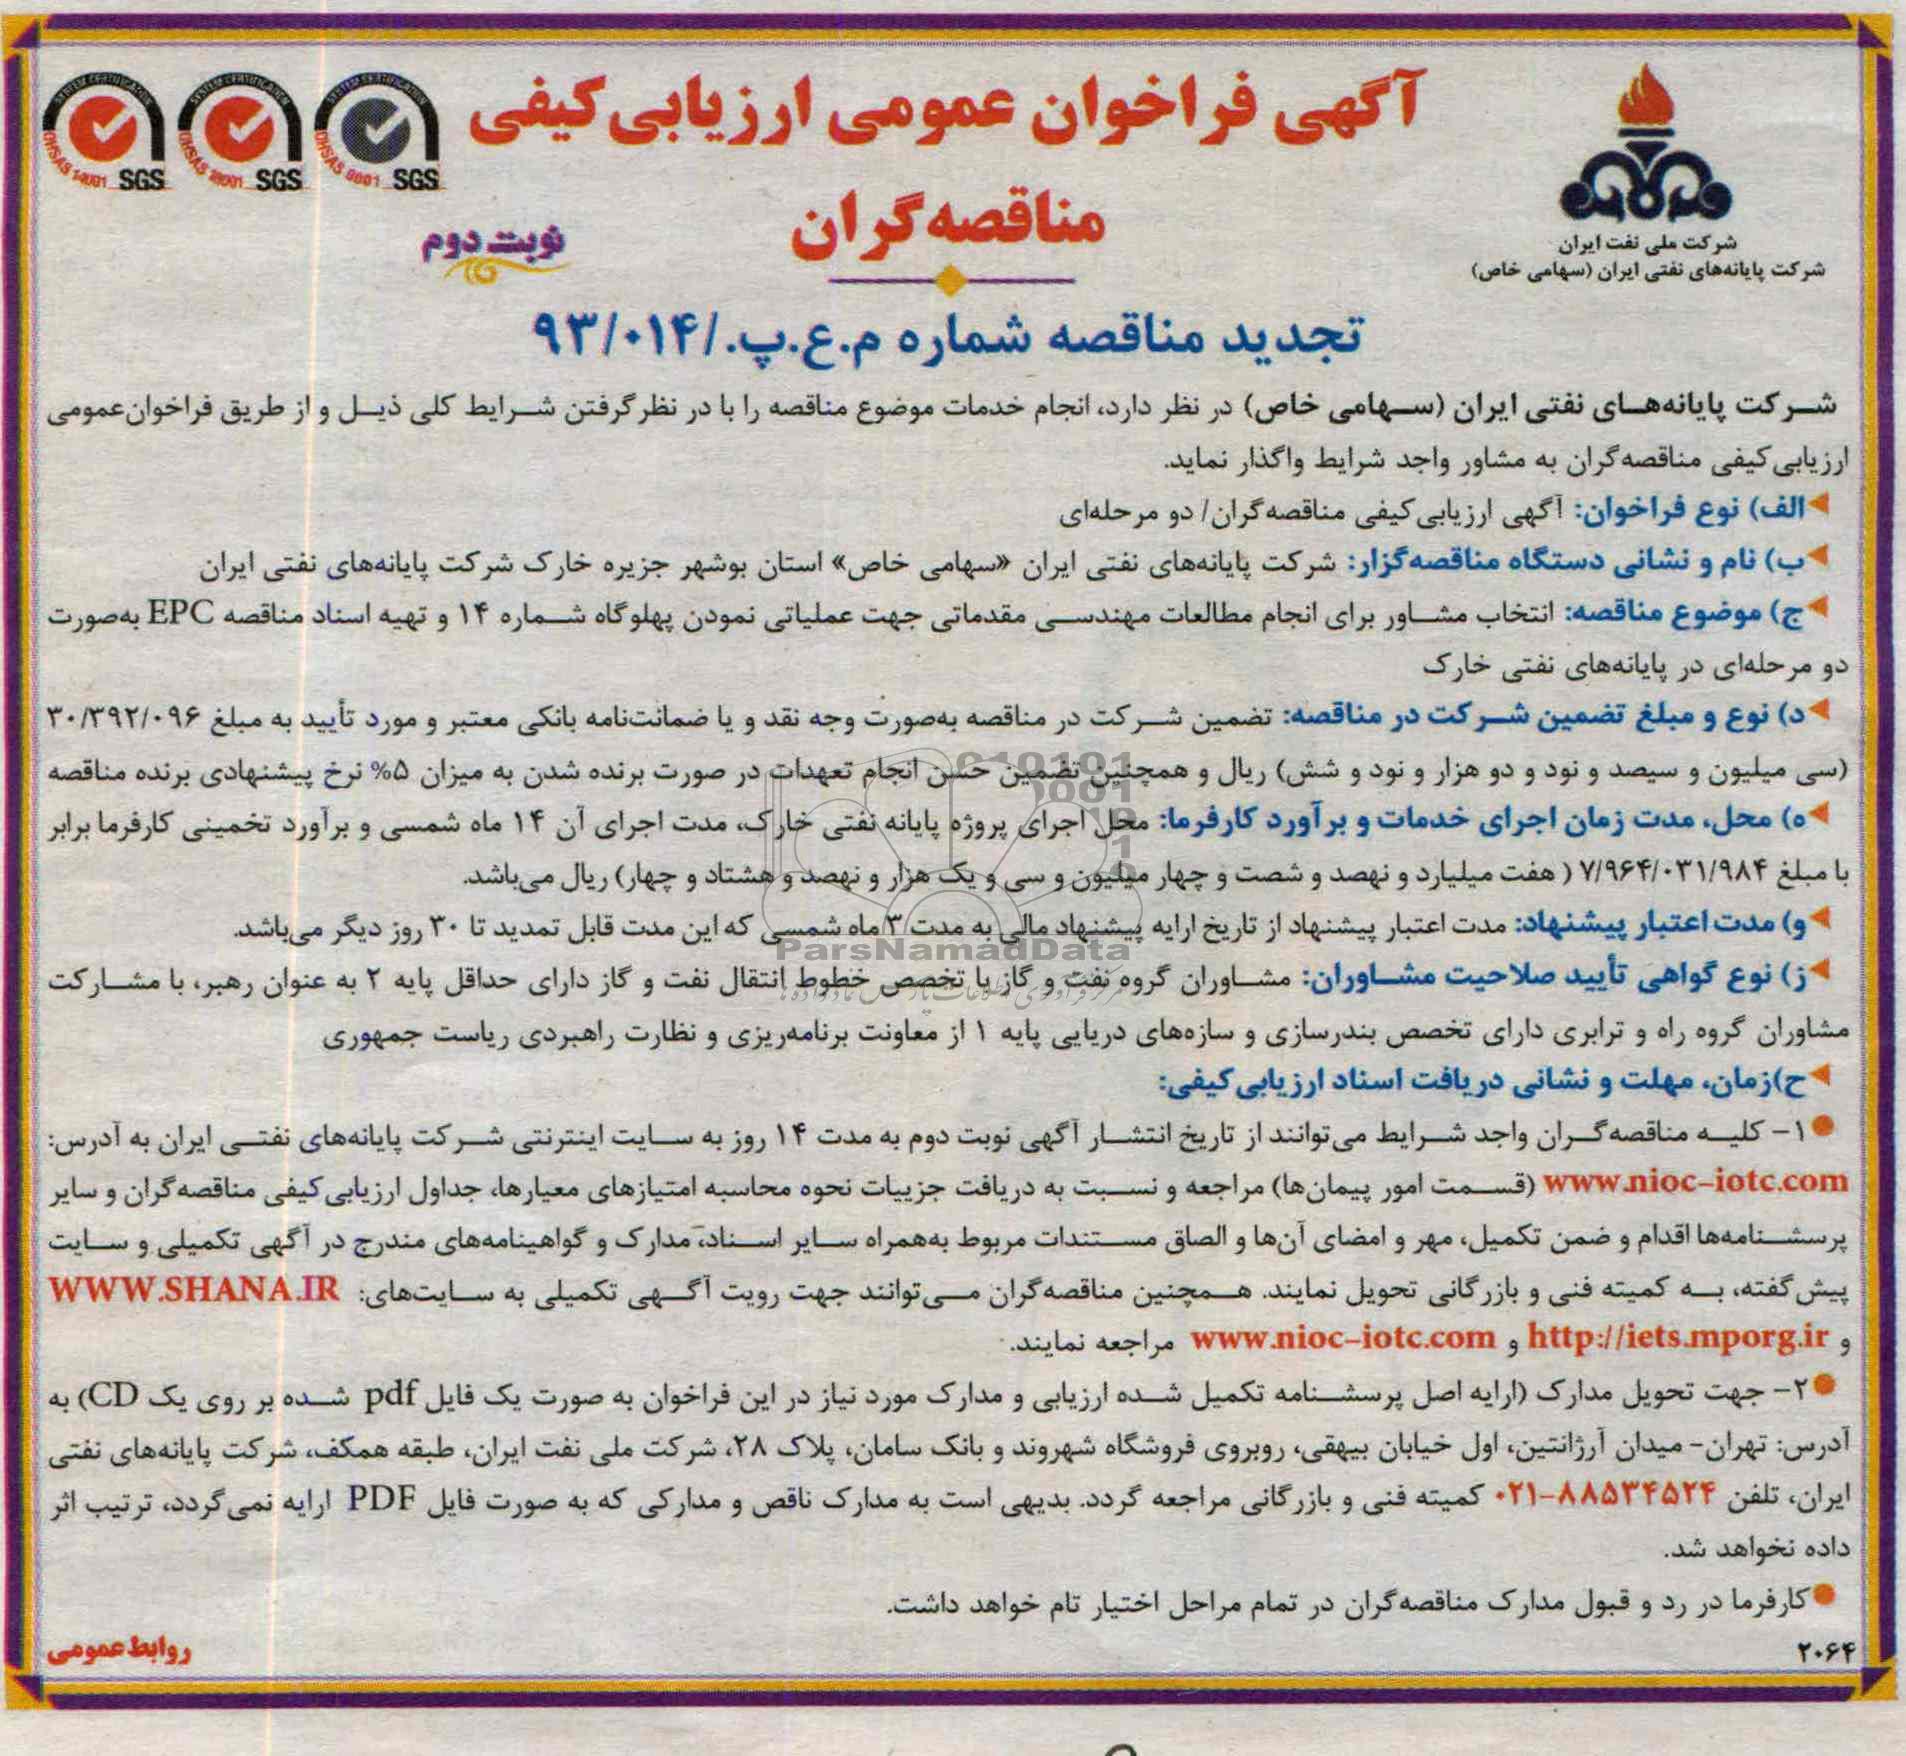 آگهی فراخوان عمومی ارزیابی کیفی
مناقصه‌گران
نوبت دوم
SYSTEM CERTIFICATION
OHSAS 14001 SGS
SYSTEM CERTIFICATION
OHSAS 18001 SGS
SYSTEM CERTIFICATION
OHSAS 9001 SGS
شرکت ملی نفت ایران
شرکت پایانه‌های نفتی ایران (سهامی خاص)
تجدید مناقصه شماره م.ع.پ./۹۳/۰۱۴
شرکت پایانه‌های نفتی ایران (سهامی خاص) در نظر دارد، انجام خدمات موضوع مناقصه را با در نظر گرفتن شرایط کلی ذیل و از طریق فراخوان‌عمومی
ارزیابی کیفی مناقصه‌گران به مشاور واجد شرایط واگذار نماید.
الف) نوع فراخوان: آگهی ارزیابی کیفی مناقصه‌گران/ دو مرحله‌ای
ب) نام و نشانی دستگاه مناقصه‌گزار: شرکت پایانه‌های نفتی ایران «سهامی خاص» استان بوشهر جزیره خارک شرکت پایانه‌های نفتی ایران
ج) موضوع مناقصه: انتخاب مشاور برای انجام مطالعات مهندسی مقدماتی جهت عملیاتی نمودن پهلوگاه شماره ۱۴ و تهیه اسناد مناقصه EPC به‌صورت
دو مرحله‌ای در پایانه‌های نفتی خارک
د) نوع و مبلغ تضمین شرکت در مناقصه: تضمین شرکت در مناقصه به‌صورت وجه نقد و یا ضمانت‌نامه بانکی معتبر و مورد تأیید به مبلغ ۳۰/۳۹۲/۰۹۶
(سی میلیون و سیصد و نود و دو هزار و نود و شش) ریال و همچنین تضمین حسن انجام تعهدات در صورت برنده شدن به میزان ۵% نرخ پیشنهادی برنده مناقصه
ه) محل، مدت زمان اجرای خدمات و برآورد کارفرما: محل اجرای پروژه پایانه نفتی خارک، مدت اجرای آن ۱۴ ماه شمسی و برآورد تخمینی کارفرما برابر
با مبلغ ۷/۹۶۴/۰۳۱/۹۸۴ ( هفت میلیارد و نهصد و شصت و چهار میلیون و سی و یک هزار و نهصد و هشتاد و چهار) ریال می‌باشد.
و) مدت اعتبار پیشنهاد: مدت اعتبار پیشنهاد از تاریخ ارایه پیشنهاد مالی به مدت ۳ ماه شمسی که این مدت قابل تمدید تا ۳۰ روز دیگر می‌باشد.
ParsNamadData
ز) نوع گواهی تأیید صلاحیت مشاوران: مشاوران گروه نفت و گاز با تخصص خطوط انتقال نفت و گاز دارای حداقل پایه ۲ به عنوان رهبر، با مشارکت
مشاوران گروه راه و ترابری دارای تخصص بندرسازی و سازه‌های دریایی پایه ۱ از معاونت برنامه‌ریزی و نظارت راهبردی ریاست جمهوری
ح)زمان، مهلت و نشانی دریافت اسناد ارزیابی کیفی:
۱- کلیه مناقصه‌گران واجد شرایط می‌توانند از تاریخ انتشار آگهی نوبت دوم به مدت ۱۴ روز به سایت اینترنتی شرکت پایانه‌های نفتی ایران به آدرس:
www.nioc-iotc.com (قسمت امور پیمان‌ها) مراجعه و نسبت به دریافت جزییات نحوه محاسبه امتیازهای معیارها، جداول ارزیابی کیفی مناقصه‌گران و سایر
پرسشنامه‌ها اقدام و ضمن تکمیل، مهر و امضای آن‌ها و الصاق مستندات مربوط به‌همراه سایر اسناد، مدارک و گواهینامه‌های مندرج در آگهی تکمیلی و سایت
پیش گفته، به کمیته فنی و بازرگانی تحویل نمایند. همچنین مناقصه‌گران می‌توانند جهت رویت آگهی تکمیلی به سایت‌های: WWW.SHANA.IR
و http://iets.mporg.ir و www.nioc-iotc.com مراجعه نمایند.
۲- جهت تحویل مدارک (ارایه اصل پرسشنامه تکمیل شده ارزیابی و مدارک مورد نیاز در این فراخوان به صورت یک فایل pdf شده بر روی یک CD) به
آدرس: تهران- میدان آرژانتین، اول خیابان بیهقی، روبروی فروشگاه شهروند و بانک سامان، پلاک ۲۸، شرکت ملی نفت ایران، طبقه همکف، شرکت پایانه‌های نفتی
ایران، تلفن ۸۸۵۳۴۵۲۴-۰۲۱ کمیته فنی و بازرگانی مراجعه گردد. بدیهی است به مدارک ناقص و مدارکی که به صورت فایل PDF ارایه نمی‌گردد، ترتیب اثر
داده نخواهد شد.
کارفرما در رد و قبول مدارک مناقصه‌گران در تمام مراحل اختیار تام خواهد داشت.
۲۰۶۴
روابط عمومی